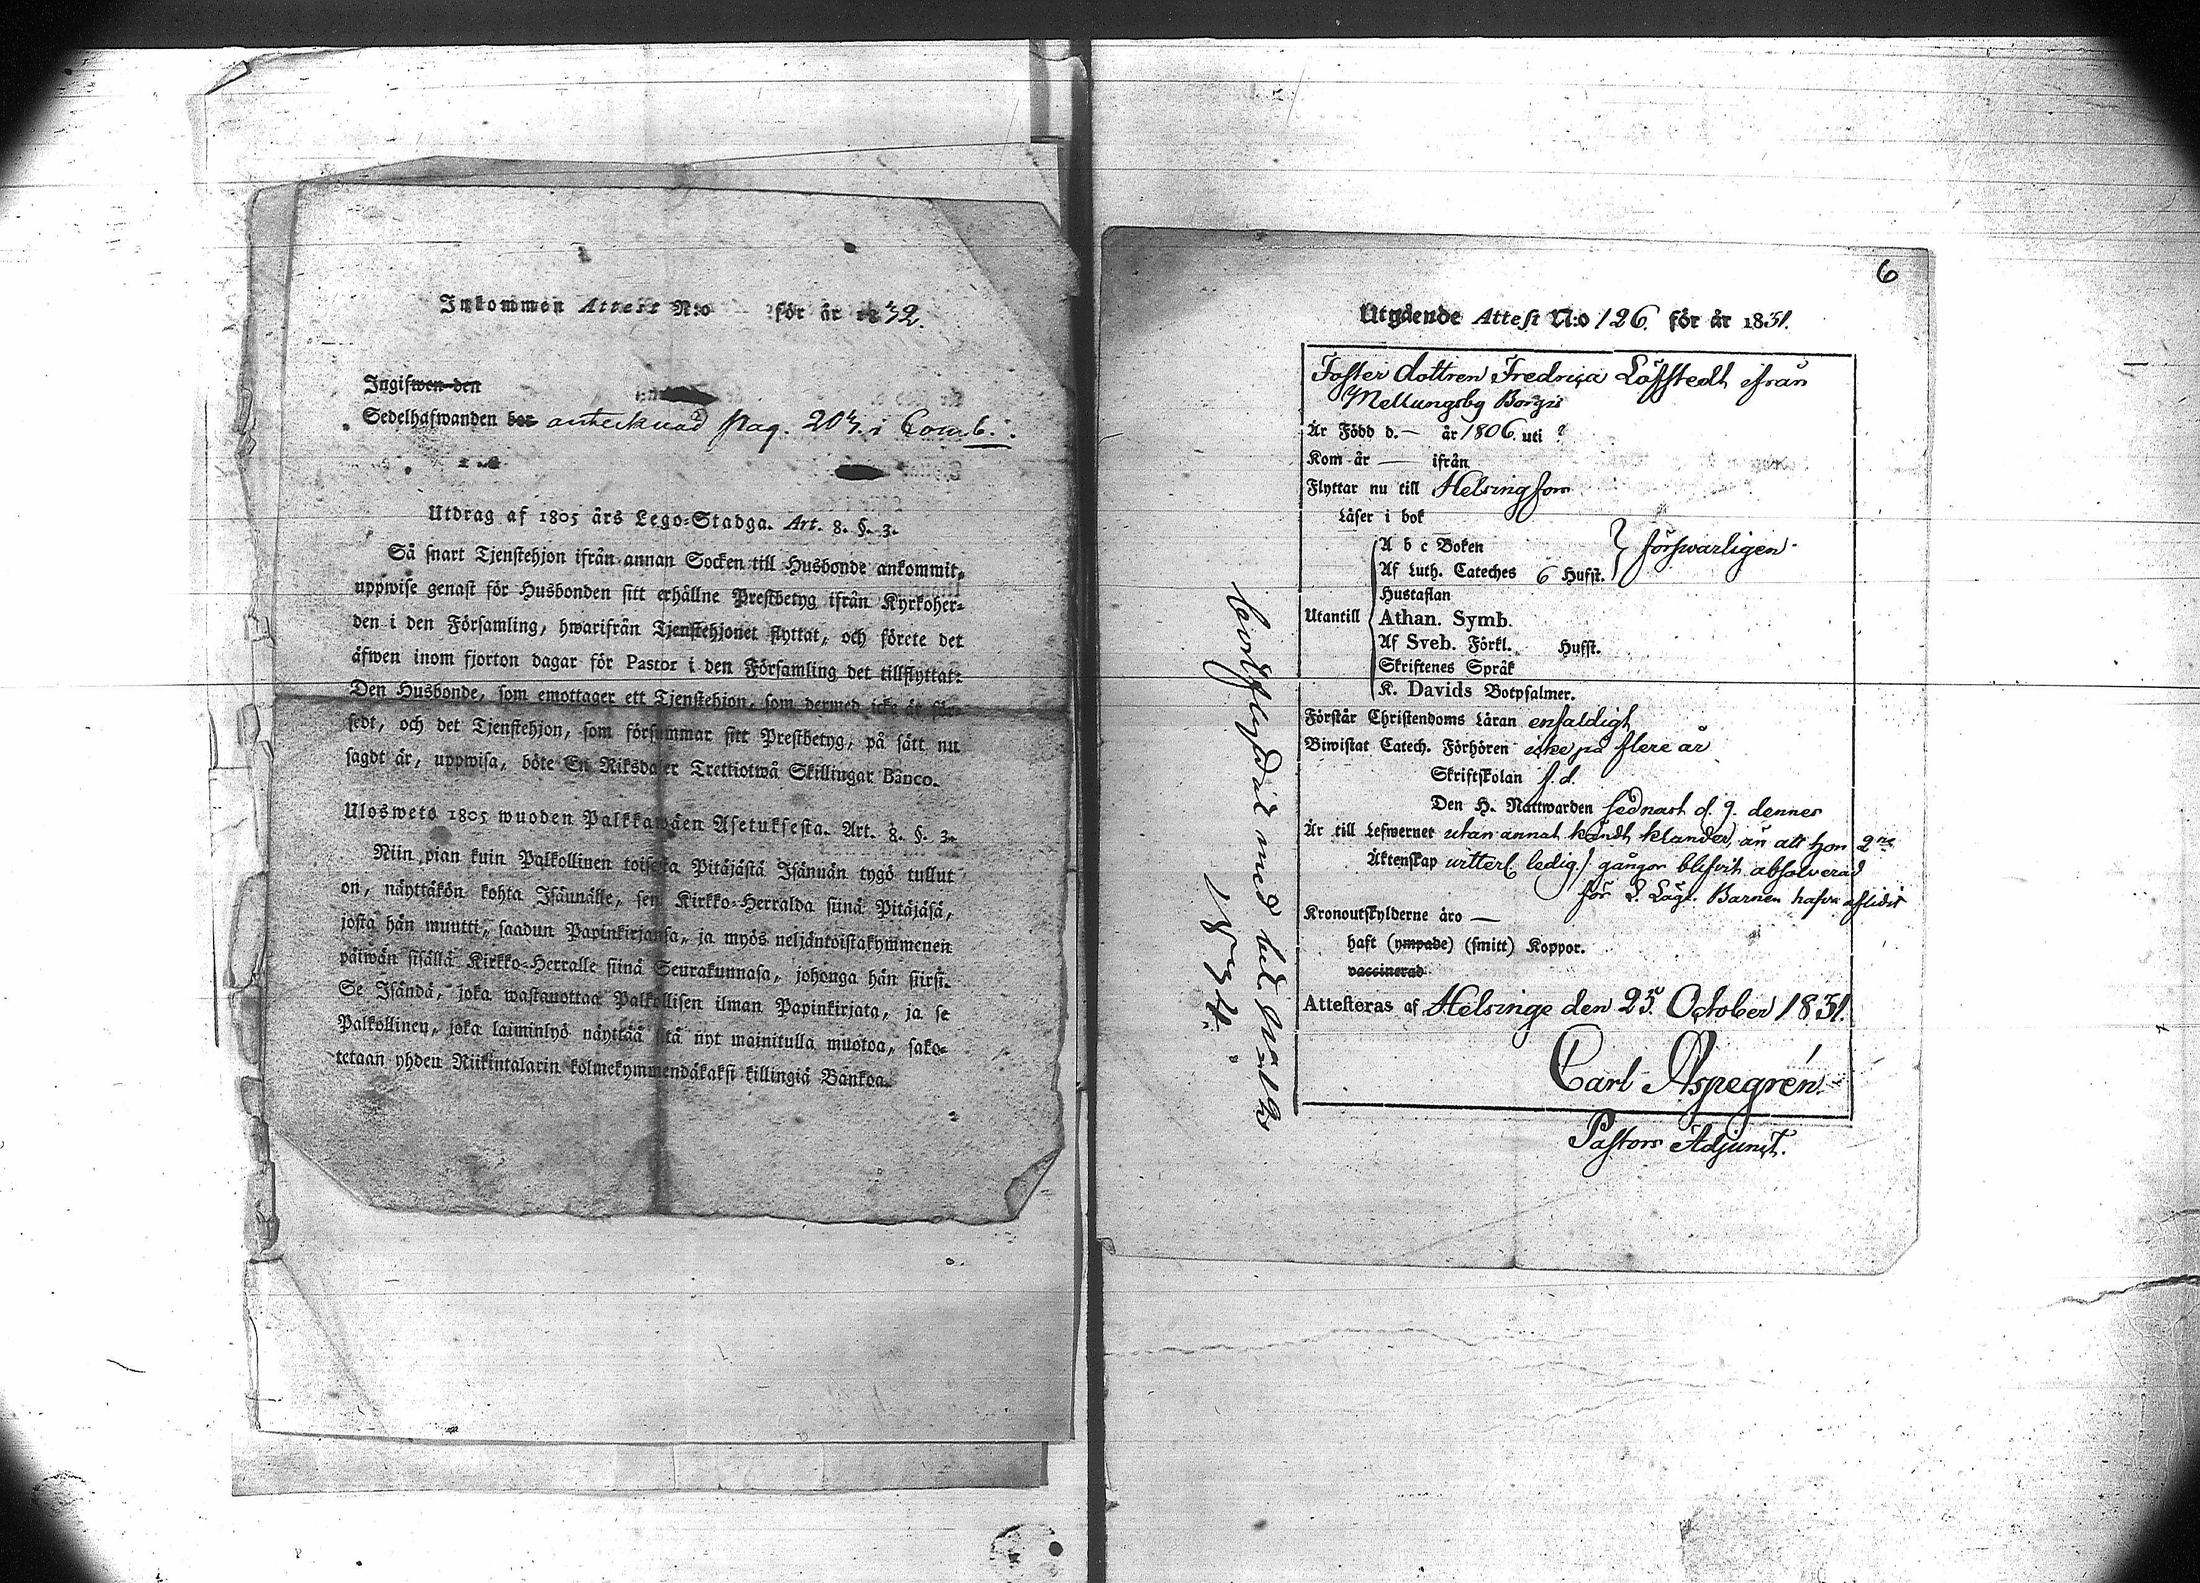 Inkommen Attest N:o för år 1832.
Ingifwen den
Sedelhafwanden bor antecknad pag. 204. i Comb.
Utdrag af 1805 års Lego-Stadga. Art. 8. §. 3.
Så snart Tjenstehjon ifrån annan Socken till Husbonde ankommit,
uppwise genast för Husbonden sitt erhållne Prestbetyg ifrån Kyrkoher-
den i den Församling, hwarifrån Tjenstehjonet flyttat, och förete det
äfwen inom fjorton dagar för Pastor i den Församling det tillflyttat:
Den Husbonde, som emottager ett Tjenstehjon, som dermed icke är för-
sedt, och det Tjenstehjon, som försummar sitt Prestbetyg, på sätt nu
sagdt är, uppwisa, böte En Riksdaler Trettiotwå Skillingar Banco.
Ulosweto 1805 wuoden Palkkawäen Asetuksesta. Art. 8. §. 3.
Niin pian kuin Palkollinen toisesta Pitäjästä Isännän tygö tullut
on, näyttäkön kohta Isännälle, sen Kirkko-Herralda siinä Pitäjäsä,
josta hän muutti, saadun Papinkirjansa, ja myös neljäntoistakymmenen
päiwän sisällä Kirkko-Herralle siinä Seurakunnasa, johonga hän siirsi.
Se Isändä, joka wastanottaa Palkollisen ilman Papinkirjata, ja se
Palkollinen, joka laiminlyö näyttää sitä nyt mainitulla muotoa, sako-
tetaan yhden Riikintalarin kolmekymmendäkaksi killingiä Bankoa.
6
Utgående Attest N:o 126 för år 1831.
Foster dottren Fredrica Löfstedt ifrån
Mellungsby Borgis
Är Född d. — år 1806. uti ?
Kom år — ifrån
Flyttar nu till Helsingfors
Läser i bok
A b c Boken
Af Luth. Cateches 6 Hufst. } förswarligen
Hustaflan
Utantill Athan. Symb.
Af Sveb. Förkl. Hufst.
Skriftenes Språk
K. Davids Botpsalmer.
Förstår Christendoms Läran enfaldigt
Biwistat Catech. Förhören icke på flere år
Skriftskolan s. d.
Den H. Nattwarden sednast d. 9. dennes
Är till Lefwernet utan annat kändt klander, än att hon 2ne
Äktenskap witterl. ledig. gångor blifvit absolverad
för L. Läg. Barnen hafva aflidit
Kronoutskylderne äro —
haft (ympade) (smitt) Koppor.
vaccinerad
Attesteras af Helsinge den 25. October 1831.
Carl Aspegrén
Pastors Adjunct.
bortflyttat med bet.
1834.